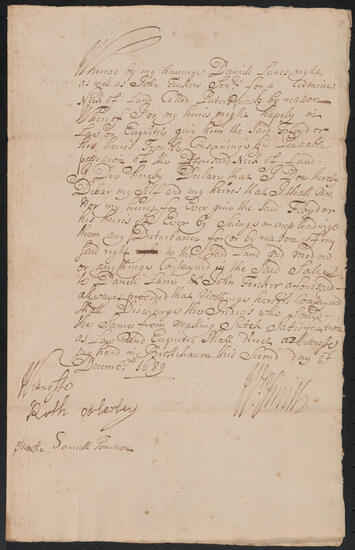 Whereas by my haveinge Daniell Lanes right
as well as John Tuckers Senr for a Certaine
Neck of Land Called by reason
Whereof I or my heires might hapely in
Law or Equitie give him the Said or
his heires Trouble Conserninge his Peaseable
possession of the aforesaid Neck of Land
I Doe hereby Declare that I Doe hereby
Debar my Self and my heires that I Shall Not
Nor my heires for Ever give the Said or
his heires for Ever by Suinge or impleadinge
them any Disturbance for or by reason of my
Said right to the Said Land and
or any thinge Contayned in the Said Sale
to Daniell Lane & John Tucker aforesaid
allwayes provided that Nothinge herein Contayned
Shall Discharge the Indians who Sould
the Same from makinge Such Satisfaction
as Law and Equitie Shall Direct as Witnesse
my hand in Brookhaven this Second day of
Decembr 1689
Witnesse
Wm Smith
Ruth
Samuell